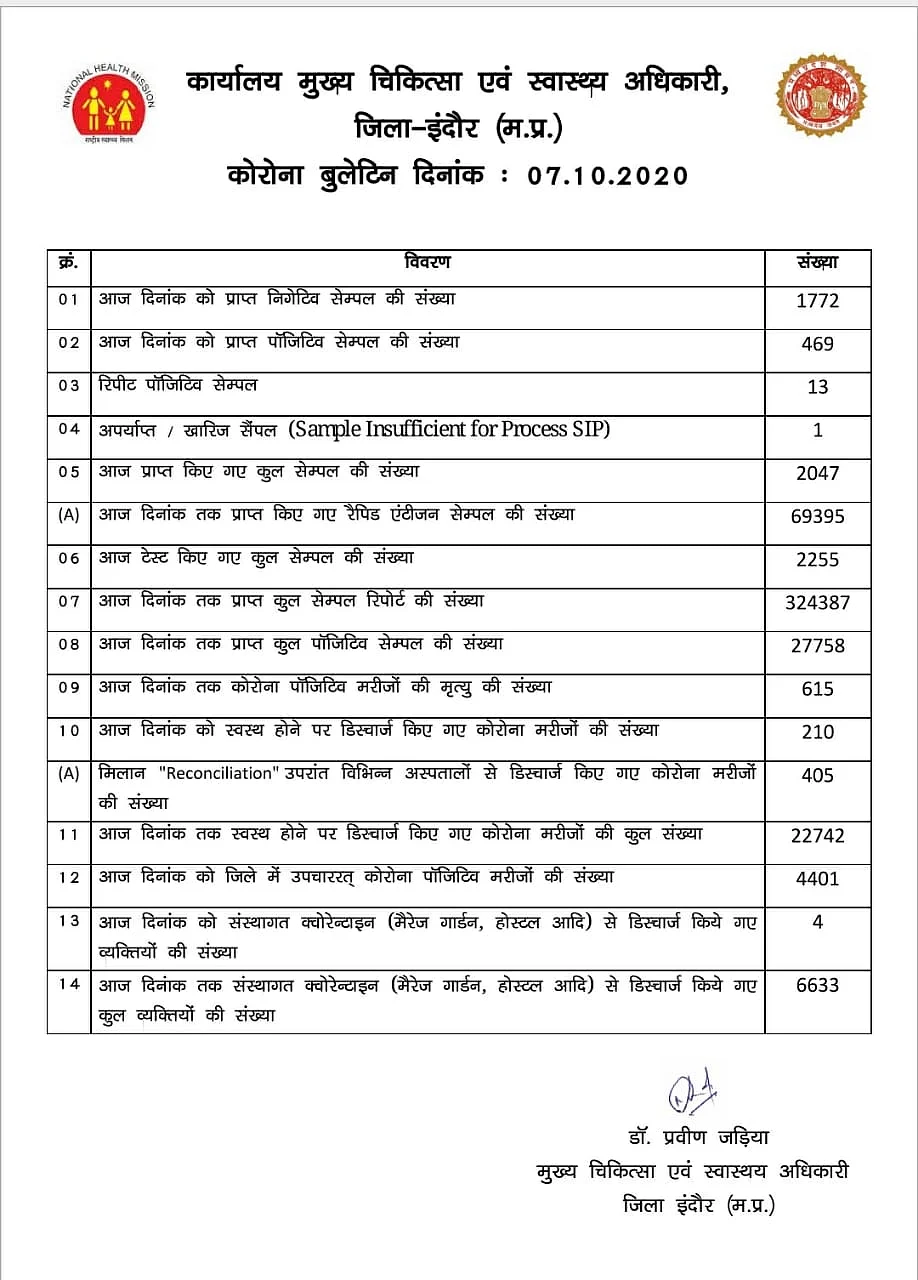 NATIONAL HEALTH MISSION
राष्ट्रीय स्वास्थ्य मिशन
कार्यालय मुख्य चिकित्सा एवं स्वास्थ्य अधिकारी,
जिला–इंदौर (म.प्र.)
कोरोना बुलेटिन दिनांक : 07.10.2020
क्रं. विवरण संख्या
01 आज दिनांक को प्राप्त निगेटिव सेम्पल की संख्या 1772
02 आज दिनांक को प्राप्त पॉजिटिव सेम्पल की संख्या 469
03 रिपीट पॉजिटिव सेम्पल 13
04 अपर्याप्त / खारिज सैंपल (Sample Insufficient for Process SIP) 1
05 आज प्राप्त किए गए कुल सेम्पल की संख्या 2047
(A) आज दिनांक तक प्राप्त किए गए रैपिड एंटीजन सेम्पल की संख्या 69395
06 आज टेस्ट किए गए कुल सेम्पल की संख्या 2255
07 आज दिनांक तक प्राप्त कुल सेम्पल रिपोर्ट की संख्या 324387
08 आज दिनांक तक प्राप्त कुल पॉजिटिव सेम्पल की संख्या 27758
09 आज दिनांक तक कोरोना पॉजिटिव मरीजों की मृत्यु की संख्या 615
10 आज दिनांक को स्वस्थ होने पर डिस्चार्ज किए गए कोरोना मरीजों की संख्या 210
(A) मिलान "Reconciliation" उपरांत विभिन्न अस्पतालों से डिस्चार्ज किए गए कोरोना मरीजों 405
की संख्या
11 आज दिनांक तक स्वस्थ होने पर डिस्चार्ज किए गए कोरोना मरीजों की कुल संख्या 22742
12 आज दिनांक को जिले में उपचाररत् कोरोना पॉजिटिव मरीजों की संख्या 4401
13 आज दिनांक को संस्थागत क्वोरेन्टाइन (मैरेज गार्डन, होस्टल आदि) से डिस्चार्ज किये गए 4
व्यक्तियों की संख्या
14 आज दिनांक तक संस्थागत क्वोरेन्टाइन (मैरेज गार्डन, होस्टल आदि) से डिस्चार्ज किये गए 6633
कुल व्यक्तियों की संख्या
डॉ. प्रवीण जड़िया
मुख्य चिकित्सा एवं स्वास्थय अधिकारी
जिला इंदौर (म.प्र.)